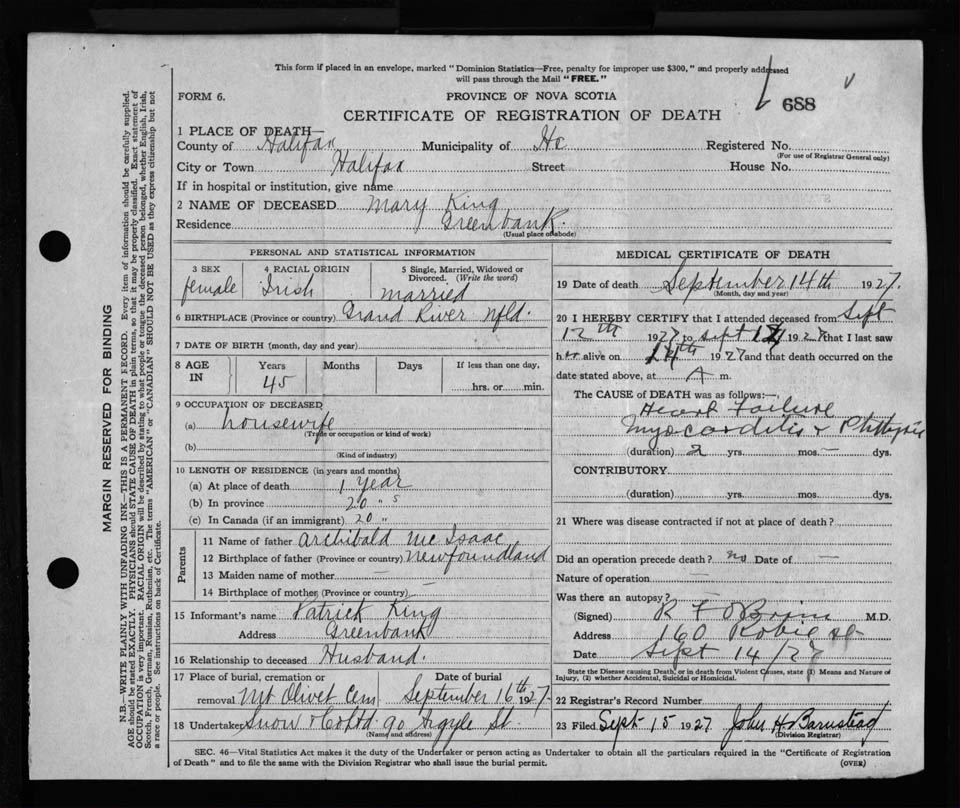 This form if placed in an envelope, marked "Dominion Statistics—Free, penalty for improper use $300," and properly addressed
will pass through the Mail "FREE."
688
FORM 6.
PROVINCE OF NOVA SCOTIA
CERTIFICATE OF REGISTRATION OF DEATH
1 PLACE OF DEATH—
County of Halifax Municipality of Hx Registered No.
(For use of Registrar General only)
City or Town Halifax Street House No.
If in hospital or institution, give name
2 NAME OF DECEASED Mary King
Residence Greenbank.
(Usual place of abode)
PERSONAL AND STATISTICAL INFORMATION
3 SEX 4 RACIAL ORIGIN 5 Single, Married, Widowed or
Divorced. (Write the word)
female Irish married
6 BIRTHPLACE (Province or country) Grand River Nfld.
7 DATE OF BIRTH (month, day and year)
8 AGE IN Years Months Days If less than one day,
45 hrs. or min.
9 OCCUPATION OF DECEASED
(a) housewife
(Trade or occupation or kind of work)
(b)
(Kind of industry)
10 LENGTH OF RESIDENCE (in years and months)
(a) At place of death 1 year
(b) In province 20 " s
(c) In Canada (if an immigrant) 20 "
Parents
11 Name of father Archibald Mc Isaac
12 Birthplace of father (Province or country) Newfoundland
13 Maiden name of mother —
14 Birthplace of mother (Province or country) —
15 Informant's name Patrick King
Address Greenbank
16 Relationship to deceased Husband.
17 Place of burial, cremation or Date of burial
removal Mt Olivet Cem September 16th 1927.
18 Undertaker Snow & Co Ltd 90 Argyle St.
(Name and address)
MEDICAL CERTIFICATE OF DEATH
19 Date of death September 14th 1927.
(Month, day and year)
20 I HEREBY CERTIFY that I attended deceased from Sept
12th 1927 to Sept 1927 that I last saw
her alive on 14th 1927 and that death occurred on the
date stated above, at A m.
The CAUSE of DEATH was as follows:—
Heart Failure
Myocarditis & Phthysis
(duration) 2 yrs. mos. — dys.
CONTRIBUTORY
(duration) yrs. mos. dys.
21 Where was disease contracted if not at place of death?
Did an operation precede death? no Date of —
Nature of operation —
Was there an autopsy?
(Signed) R F O'Brien M.D.
Address 160 Robie St
Date Sept 14/27
State the Disease causing Death, or in death from Violent Causes, state (1) Means and Nature of
Injury, (2) whether Accidental, Suicidal or Homicidal.
22 Registrar's Record Number
23 Filed Sept 15 1927 John H Barnstead
(Division Registrar)
SEC. 46—Vital Statistics Act makes it the duty of the Undertaker or person acting as Undertaker to obtain all the particulars required in the "Certificate of Registration
of Death" and to file the same with the Division Registrar who shall issue the burial permit.
(OVER)
MARGIN RESERVED FOR BINDING
N.B.—WRITE PLAINLY WITH UNFADING INK—THIS IS A PERMANENT RECORD. Every item of information should be carefully supplied.
AGE should be stated EXACTLY. PHYSICIANS should STATE CAUSE OF DEATH in plain terms, so that it may be properly classified. Exact statement of
OCCUPATION is very important. RACIAL ORIGIN will be described by stating to what people or tongue the deceased person belonged, whether English, Irish,
Scotch, French, German, Russian, Ruthenian, etc. The terms "AMERICAN" or "CANADIAN" SHOULD NOT BE USED as they express citizenship but not
a race or people. See instructions on back of Certificate.